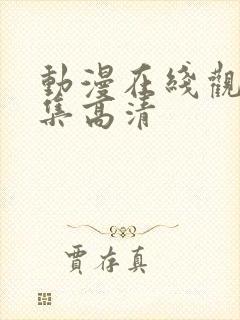 動漫在綫觀
集高清
賈存真